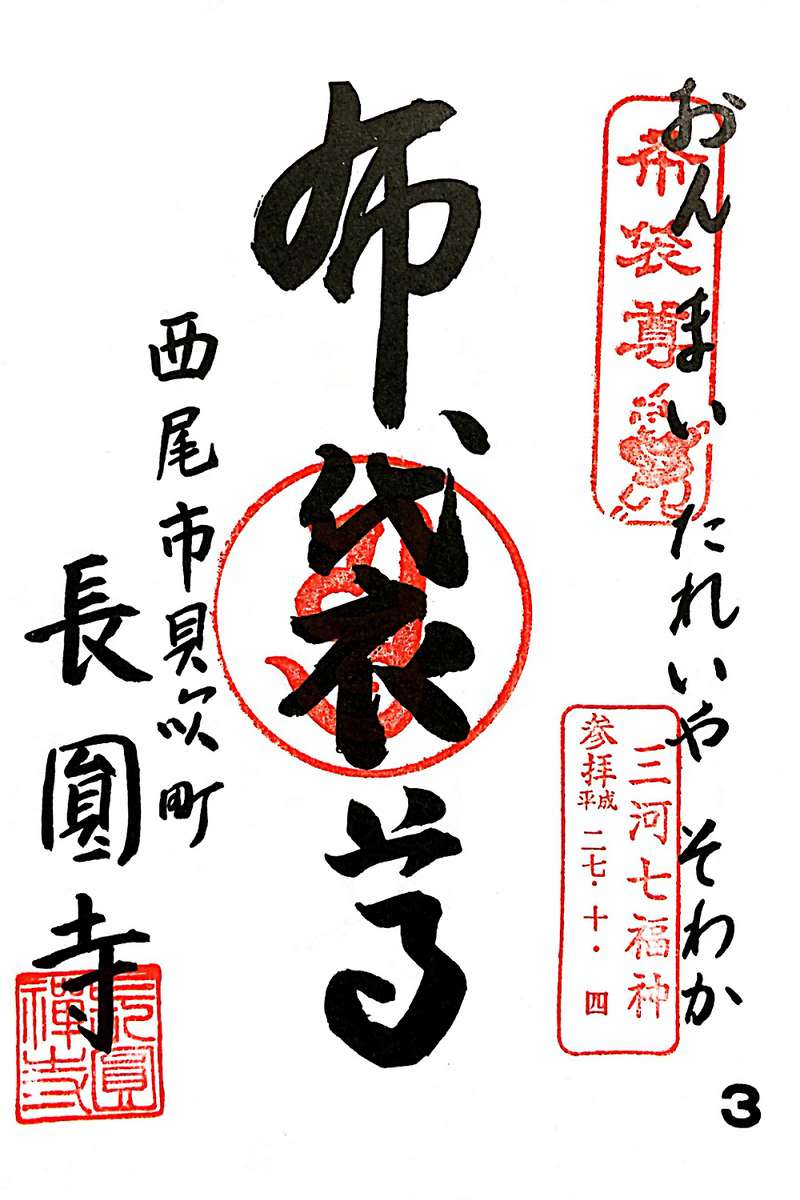 おん まい たれいや そわか
布袋尊
三河七福神
参拝平成二七・十・四
布袋尊
西尾市貝吹町
長圓寺
長圓禅寺
3